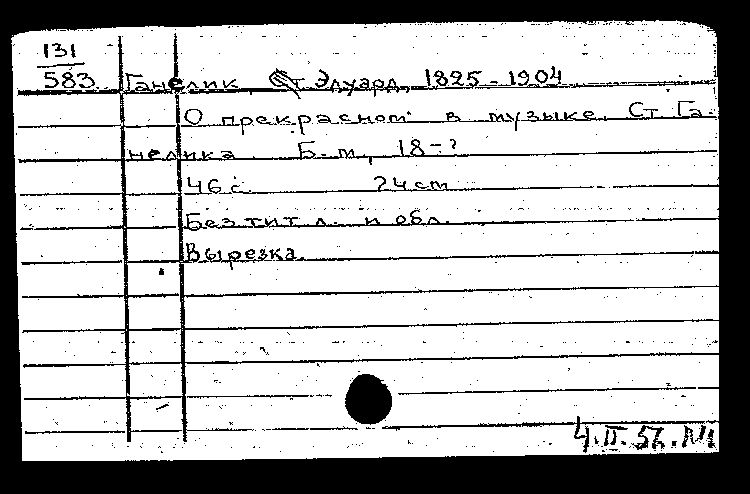 131
583 Ганслик, Эдуард, 1825-1904
О прекрасном в музыке. Ст. Га-
нслика. Б.м., 18-?
46 с. 24 cm
Без тит. л. и обл.
Вырезка.
4.II.57.